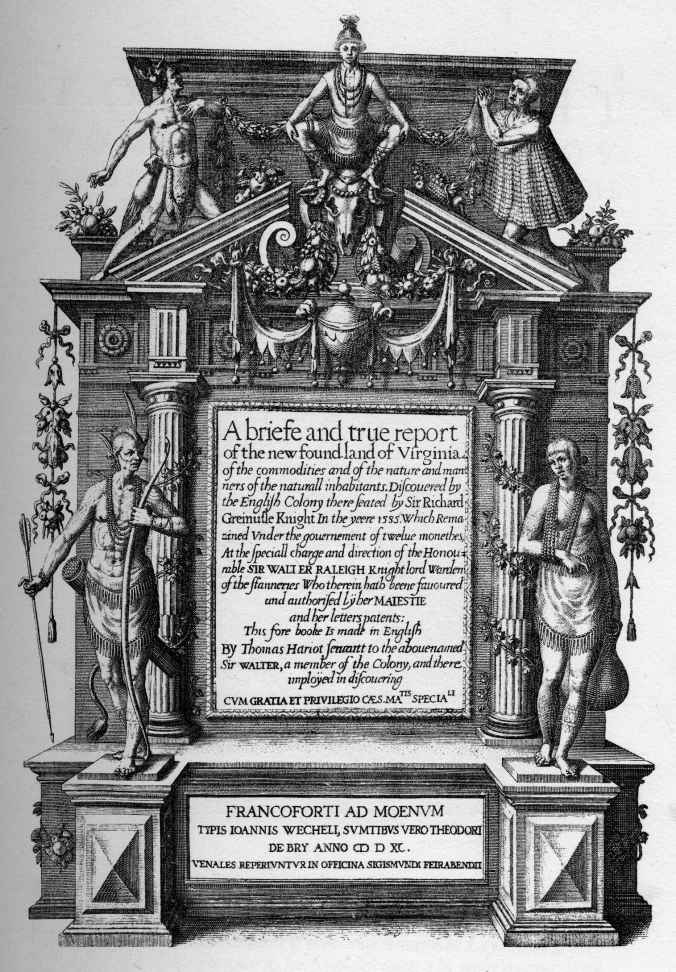 A briefe and true report
of the new found land of Virginia
of the commodities and of the nature and man
ners of the naturall inhabitants. Discouered by
the English Colony there seated by Sir Richard
Greinuile Knight In the yeere 1585. Which Rema
ined Vnder the gouernement of twelue monethes,
At the speciall charge and direction of the Honou
rable SIR WALTER RALEIGH Knight lord Warden
of the stanneries Who therein hath beene fauoured
and authorised by her MAIESTIE
and her letters patents:
This fore booke Is made in English
By Thomas Hariot seruant to the abouenamed
Sir WALTER, a member of the Colony, and there
imployed in discouering
CVM GRATIA ET PRIVILEGIO CÆS. MATIS SPECIALI
FRANCOFORTI AD MOENVM
TYPIS IOANNIS WECHELI, SVMTIBVS VERO THEODORI
DE BRY ANNO CIↃ D XC.
VENALES REPERIVNTVR IN OFFICINA SIGISMVNDI FEIRABENDII